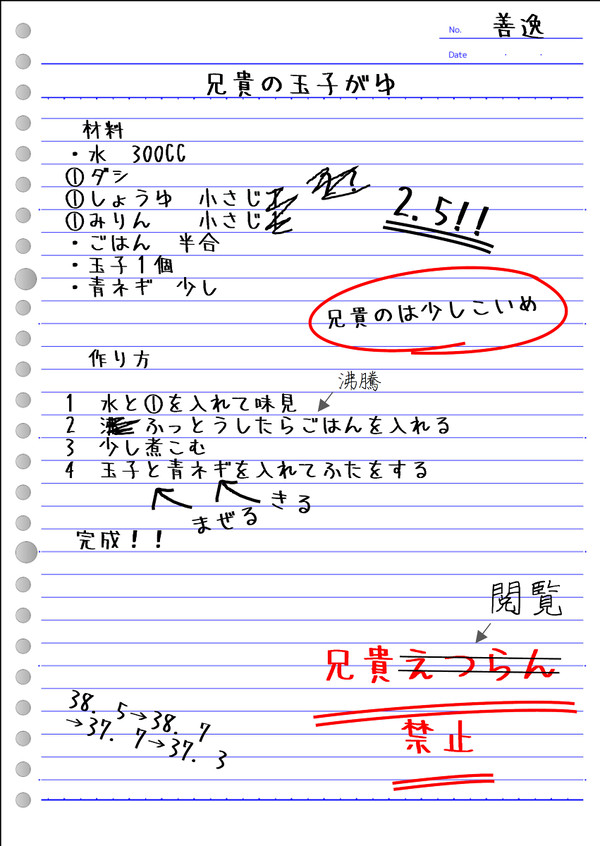 No. 善逸
Date ・ ・
兄貴の玉子がゆ
材料
・水 300CC
①ダシ
①しょうゆ 小さじ
①みりん 小さじ
2.5!!
・ごはん 半合
・玉子1個
・青ネギ 少し
兄貴のは少しこいめ
作り方
沸騰
1 水と①を入れて味見
2 ふっとうしたらごはんを入れる
3 少し煮こむ
4 玉子と青ネギを入れてふたをする
まぜる きる
完成!!
閲覧
兄貴えつらん
禁止
38.5→38.7
→37.7→37.3